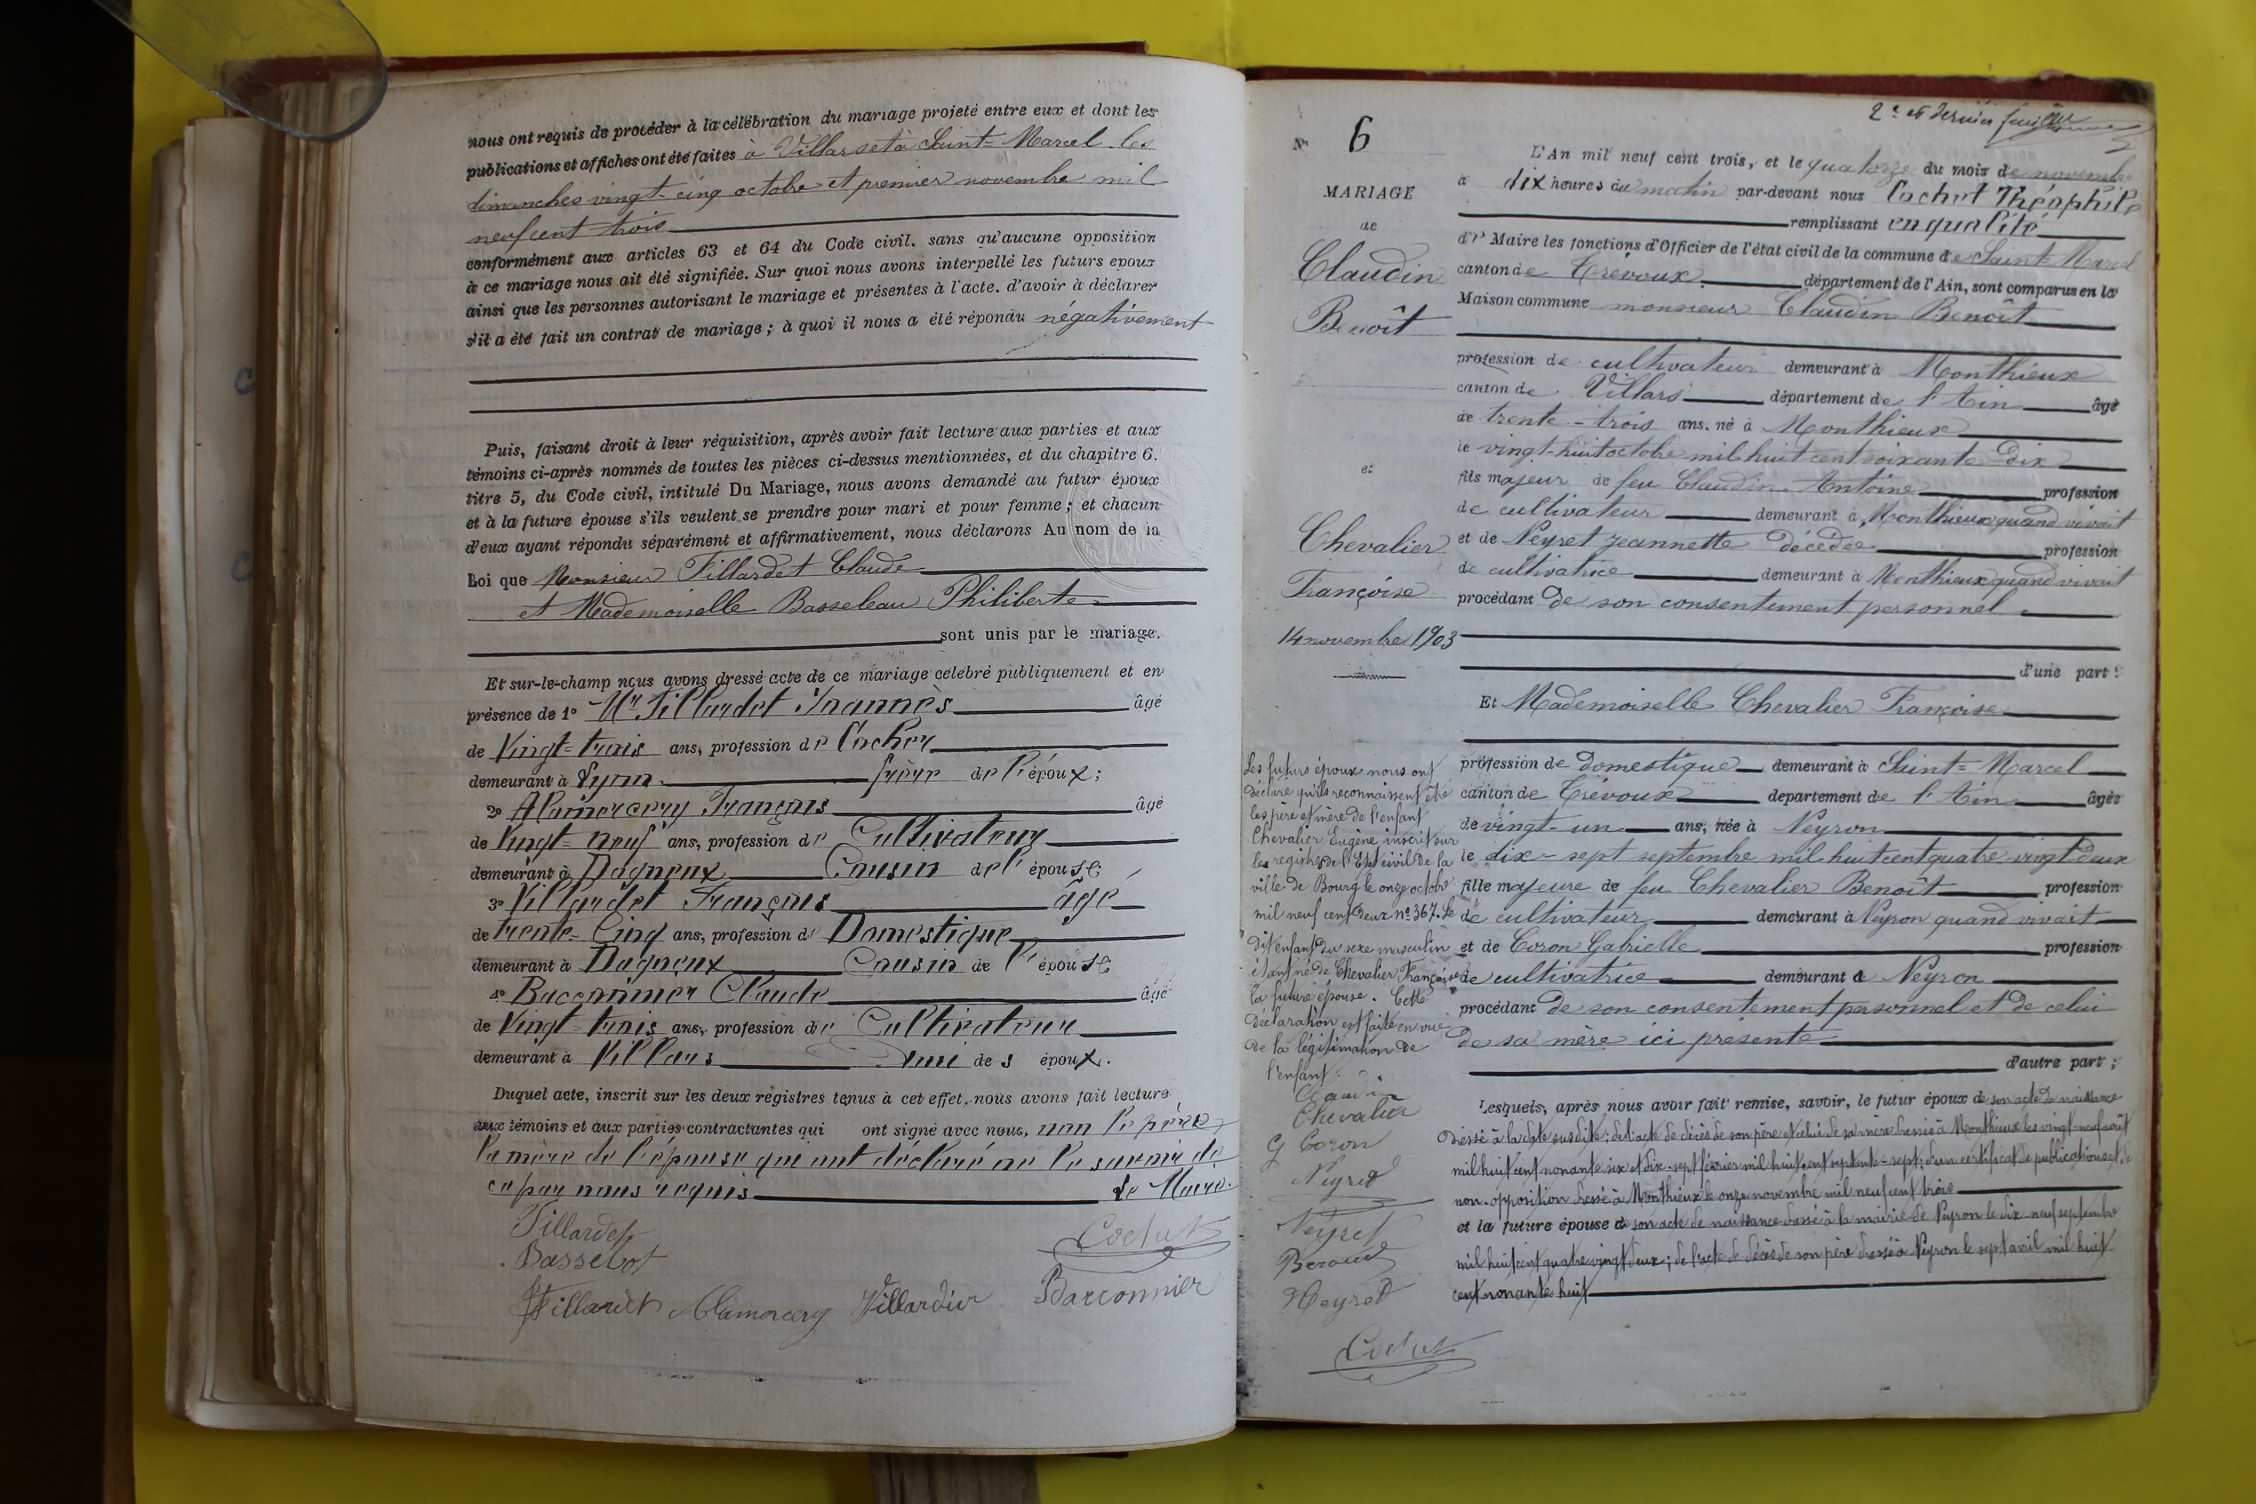 nous ont requis de procéder à la célébration du mariage projeté entre eux et dont les
publications et affiches ont été faites à Villars et à Saint-Marcel les
dimanches vingt-cinq octobre et premier novembre mil
neuf cent trois
conformément aux articles 63 et 64 du Code civil. sans qu'aucune opposition
à ce mariage nous ait été signifiée. Sur quoi nous avons interpellé les futurs époux
ainsi que les personnes autorisant le mariage et présentes à l'acte. d'avoir à déclarer
s'il a été fait un contrat de mariage ; à quoi il nous a été répondu négativement
Puis, faisant droit à leur réquisition, après avoir fait lecture aux parties et aux
témoins ci-après nommés de toutes les pièces ci-dessus mentionnées, et du chapitre 6.
titre 5, du Code civil, intitulé Du Mariage, nous avons demandé au futur époux
et à la future épouse s'ils veulent se prendre pour mari et pour femme ; et chacun
d'eux ayant répondu séparément et affirmativement, nous déclarons Au nom de la
Loi que Monsieur Fillardet Claude
et Mademoiselle Basseleau Philiberte
sont unis par le mariage.
Et sur-le-champ nous avons dressé acte de ce mariage célébré publiquement et en
présence de 1° Mr Fillardet Joannès âgé
de Vingt-trois ans, profession de Cocher
demeurant à Lyon frère de l'époux ;
2° Alamercery François âgé
de Vingt-neuf ans, profession de Cultivateur
demeurant à Dagneux Cousin de l'épouse
3° Villardet François âgé
de trente-Cinq ans, profession de Domestique
demeurant à Dagneux Cousin de l'épouse
4° Baconnier Claude âgé
de Vingt-trois ans, profession de Cultivateur
demeurant à Villars Ami des époux.
Duquel acte, inscrit sur les deux registres tenus à cet effet, nous avons fait lecture
aux témoins et aux parties contractantes qui ont signé avec nous, non le père
la mère de l'épouse qui ont déclaré ne le savoir de
ce par nous requis Le Maire.
Fillardet
Cochet
Bassebot
Fillardet Alamercery Villardier Baconnier
2e et dernier feuillet
N° 6
MARIAGE
de
Claudin
Benoît
et
Chevalier
Françoise
14 novembre 1903
L'An mil neuf cent trois, et le quatorze du mois de novembre
à dix heures du matin par-devant nous Cochet Théophile
remplissant en qualité
de Maire les fonctions d'Officier de l'état civil de la commune de Saint-Marcel
canton de Trévoux département de l'Ain, sont comparus en la
Maison commune monsieur Claudin Benoît
profession de cultivateur demeurant à Monthieux
canton de Villars département de l'Ain âgé
de trente-trois ans. né à Monthieux
le vingt-huit octobre mil huit cent soixante-dix
fils majeur de feu Claudin Antoine profession
de cultivateur demeurant à Monthieux quand vivait
et de Neyret Jeannette décédée profession
de cultivatrice demeurant à Monthieux quand vivait
procédant de son consentement personnel
d'une part :
Et Mademoiselle Chevalier Françoise
profession de Domestique demeurant à Saint-Marcel
canton de Trévoux département de l'Ain âgée
de vingt-un ans, née à Neyron
le dix-sept septembre mil huit cent quatre vingt deux
fille majeure de feu Chevalier Benoît profession
de cultivateur demeurant à Neyron quand vivait
et de Coron Gabrielle profession
de cultivatrice demeurant à Neyron
procédant de son consentement personnel et de celui
de sa mère ici présente
d'autre part ;
Lesquels, après nous avoir fait remise, savoir, le futur époux de son acte de naissance
dressé à la date susdite ; de l'acte de décès de son père et celui de sa mère dressés à Monthieux les vingt-neuf août
mil huit cent nonante-six et dix-sept février mil huit cent septante-sept ; d'un certificat de publications et de
non-opposition dressé à Monthieux le onze novembre mil neuf cent trois
et la future épouse de son acte de naissance dressé à la mairie de Neyron le dix-neuf septembre
mil huit cent quatre vingt deux ; de l'acte de décès de son père dressé à Neyron le sept avril mil huit
cent nonante huit
Les futurs époux nous ont
déclaré qu'ils reconnaissent être
les père et mère de l'enfant
Chevalier Eugène inscrit sur
les registres de l'Etat civil de la
ville de Bourg le onze octobre
mil neuf cent deux n° 367. Le
dit enfant du sexe masculin
étant né de Chevalier Françoise
la future épouse. Cette
déclaration est faite en vue
de la légitimation de
l'enfant.
Claudin
Chevalier
G Coron
Neyret
Neyret
Beroud
Neyret
Cochet